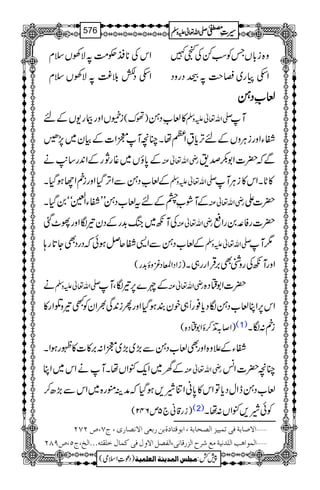 سیرتِ مصطفیٰ صلی اللہ تعالیٰ علیہ وسلم
576
وہ زباں جس کو سب کن کی کنجی کہیں اس کی نافذ حکومت پہ لاکھوں سلام
اسکی پیاری فصاحت پہ بیحد درود اسکی دلکش بلاغت پہ لاکھوں سلام
لعابِ دہن
آپ صلی اللہ تعالیٰ علیہ وسلم کا لعاب دہن (تھوک) زخمیوں اور بیماریوں کے لئے
شفاء اور زہروں کے لئے تریاقِ اعظم تھا۔ چنانچہ آپ معجزات کے بیان میں پڑھیں
گے کہ حضرت ابوبکر صدیق رضی اللہ تعالیٰ عنہ کے پاؤں میں غار ثور کے اندر سانپ نے
کاٹا۔ اس کا زہر آپ صلی اللہ تعالیٰ علیہ وسلم کے لعاب دہن سے اتر گیا اور زخم اچھا ہو گیا۔
حضرت علی رضی اللہ تعالیٰ عنہ کے آشوب چشم کے لئے یہ لعاب دہن ''شفاء العین'' بن گیا۔
حضرت رفاعہ بن رافع رضی اللہ تعالیٰ عنہ کی آنکھ میں جنگ بدر کے دن تیر لگا اور پھوٹ گئی
مگر آپ صلی اللہ تعالیٰ علیہ وسلم کے لعاب دہن سے ایسی شفا حاصل ہوئی کہ درد بھی جاتا رہا
اور آنکھ کی روشنی بھی برقرار رہی۔ (زاد المعاد غزوۂ بدر)
حضرت ابوقتادہ رضی اللہ تعالیٰ عنہ کے چہرے پر تیر لگا، آپ صلی اللہ تعالیٰ علیہ وسلم نے
اس پر اپنا لعاب دہن لگا دیا فوراً ہی خون بند ہو گیا اور پھر زندگی بھر ان کو کبھی تیر و تلوار کا
زخم نہ لگا۔ (1) (اصابہ تذکرہ ابوقتادہ)
شفاء کے علاوہ اور بھی لعاب دہن سے بڑی بڑی معجزانہ برکات کا ظہور ہوا۔
چنانچہ حضرت انس رضی اللہ تعالیٰ عنہ کے گھر میں ایک کنواں تھا۔ آپ نے اس میں اپنا
لعاب دہن ڈال دیا تو اس کا پانی اتنا شیریں ہو گیا کہ مدینہ منورہ میں اس سے بڑھ کر
کوئی شیریں کنواں نہ تھا۔ (2) (زرقانی ج۵ ص۲۴۶)
1.....الاصابة فی تمییز الصحابة ، ابوقتادة بن ربعی الانصاری ، ج۷، ص ۲۷۲
2.....المواهب اللدنیة مع شرح الزرقانی، الفصل الاول فی کمال خلقته...الخ، ج۵، ص ۲۸۹
پیش کش: مجلس المدينة العلمية (دعوتِ اسلامی)